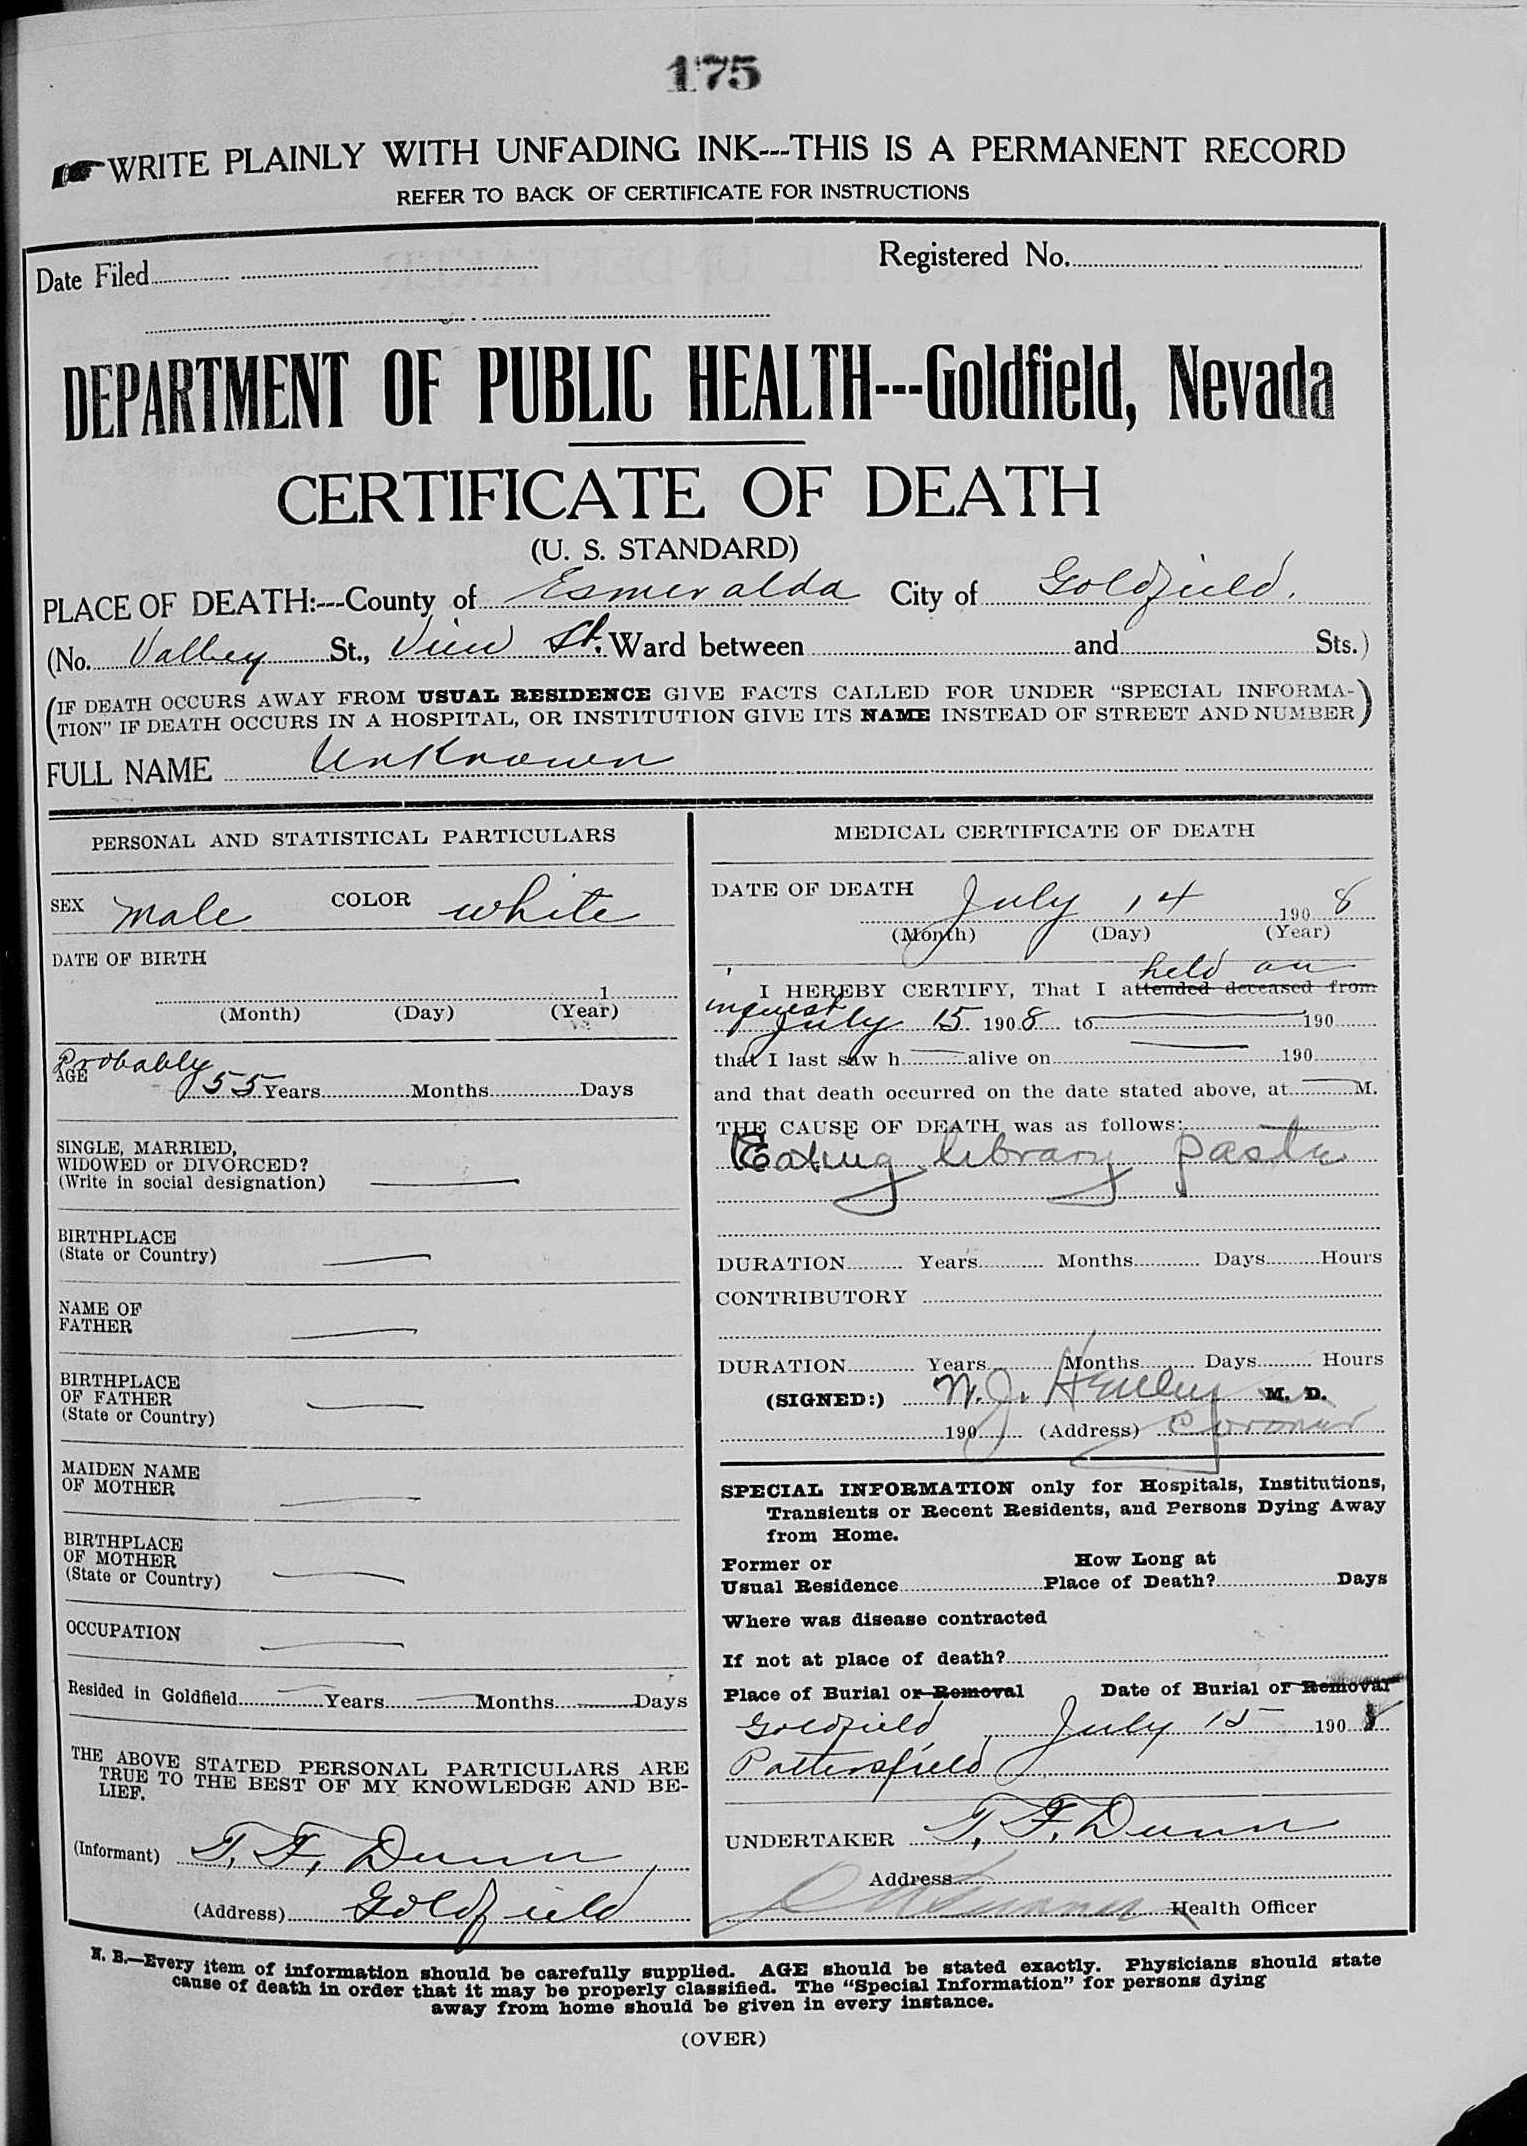 175
WRITE PLAINLY WITH UNFADING INK---THIS IS A PERMANENT RECORD
REFER TO BACK OF CERTIFICATE FOR INSTRUCTIONS
Date Filed Registered No.
DEPARTMENT OF PUBLIC HEALTH---Goldfield, Nevada
CERTIFICATE OF DEATH
(U. S. STANDARD)
PLACE OF DEATH:---County of Esmeralda City of Goldfield.
(No. Valley St., View St. Ward between and Sts.)
(IF DEATH OCCURS AWAY FROM USUAL RESIDENCE GIVE FACTS CALLED FOR UNDER "SPECIAL INFORMA-
TION" IF DEATH OCCURS IN A HOSPITAL, OR INSTITUTION GIVE ITS NAME INSTEAD OF STREET AND NUMBER)
FULL NAME Unknown
PERSONAL AND STATISTICAL PARTICULARS
SEX Male COLOR White
DATE OF BIRTH
1
(Month) (Day) (Year)
Probably
AGE 55 Years Months Days
SINGLE, MARRIED,
WIDOWED or DIVORCED?
(Write in social designation)
BIRTHPLACE
(State or Country)
NAME OF
FATHER
BIRTHPLACE
OF FATHER
(State or Country)
MAIDEN NAME
OF MOTHER
BIRTHPLACE
OF MOTHER
(State or Country)
OCCUPATION
Resided in Goldfield Years Months Days
THE ABOVE STATED PERSONAL PARTICULARS ARE
TRUE TO THE BEST OF MY KNOWLEDGE AND BE-
LIEF.
(Informant) T. F. Dunn
(Address) Goldfield
MEDICAL CERTIFICATE OF DEATH
DATE OF DEATH July 14 190 8
(Month) (Day) (Year)
held an
I HEREBY CERTIFY, That I attended deceased from
inquest
July 15 190 8 to 190
that I last saw h alive on 190
and that death occurred on the date stated above, at M.
THE CAUSE OF DEATH was as follows:
Eating library paste
DURATION Years Months Days Hours
CONTRIBUTORY
DURATION Years Months Days Hours
(SIGNED:) N. J. M. D.
190 (Address) Coroner
SPECIAL INFORMATION only for Hospitals, Institutions,
Transients or Recent Residents, and Persons Dying Away
from Home.
Former or How Long at
Usual Residence Place of Death? Days
Where was disease contracted
If not at place of death?
Place of Burial or Removal Date of Burial or Removal
Goldfield July 15 190 8
Pottersfield
UNDERTAKER T. F. Dunn
Address
Health Officer
N. B.—Every item of information should be carefully supplied. AGE should be stated exactly. Physicians should state
cause of death in order that it may be properly classified. The "Special Information" for persons dying
away from home should be given in every instance.
(OVER)